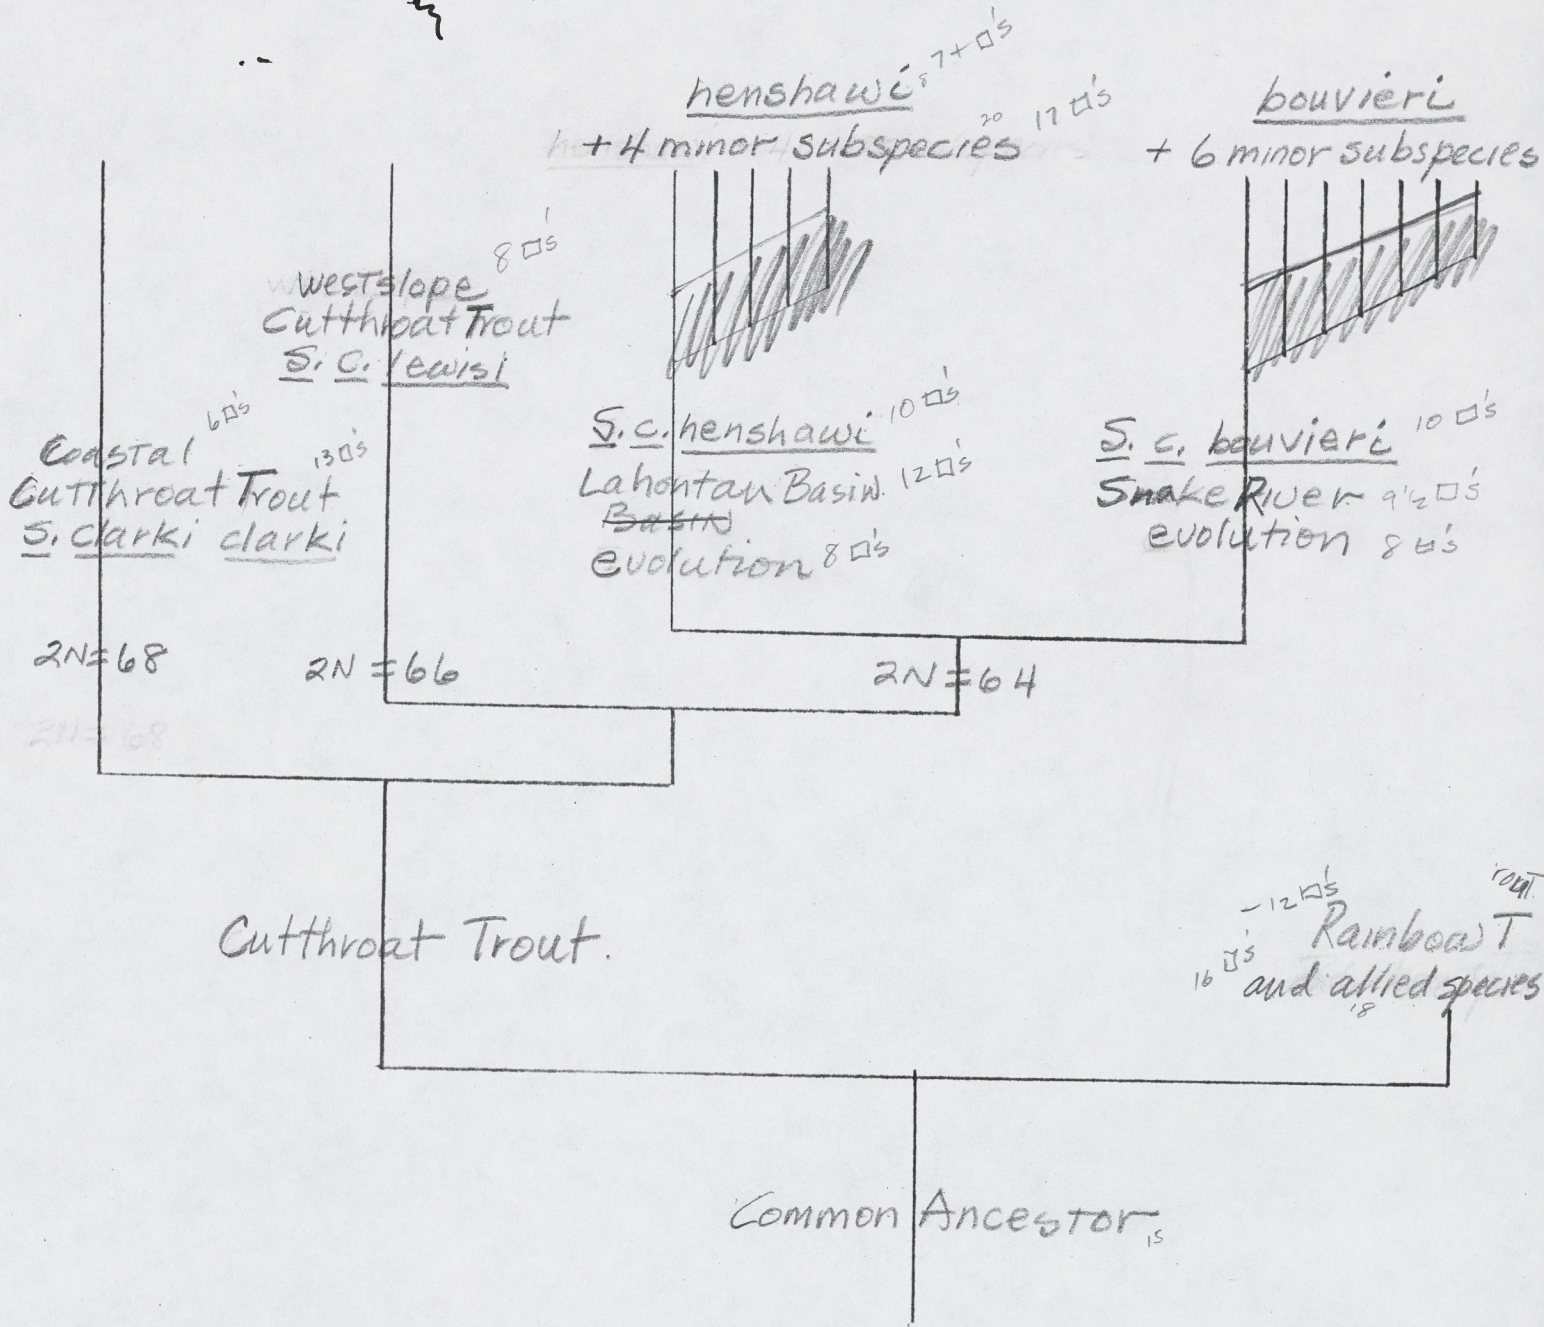 henshawi 8 7+ □'s
+ 4 minor subspecies 20 17 □'s
bouvieri
+ 6 minor subspecies
Westslope 8 □'s
Cutthroat Trout
S. c. lewisi
Coastal 6 □'s
Cutthroat Trout 13 □'s
S. clarki clarki
S. c. henshawi 10 □'s
Lahontan Basin 12 □'s
Basin
evolution 8 □'s
S. c. bouvieri 10 □'s
Snake River 9 1/2 □'s
evolution 8 □'s
2N=68
2N=66
2N=64
2N=68
Cutthroat Trout.
-12 □'s
Rainbow Trout
16 □'s and allied species
18
Common Ancestor 15